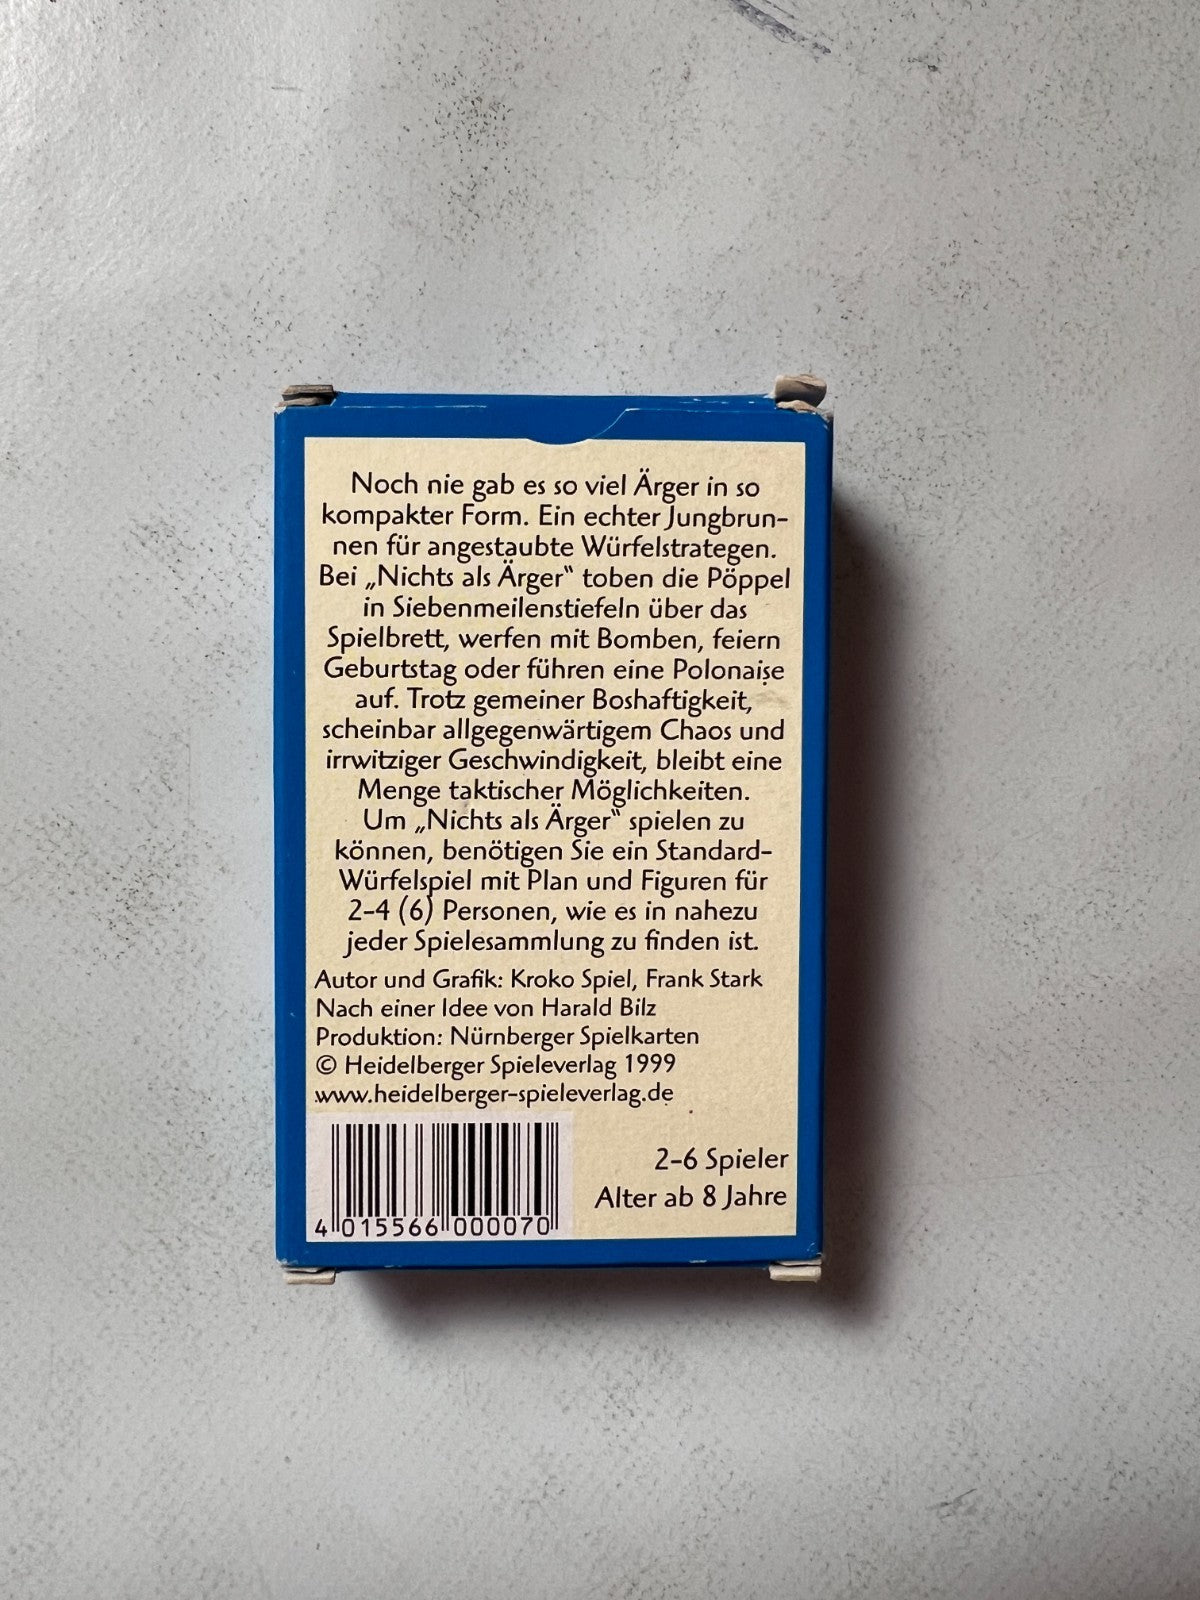 Noch nie gab es so viel Ärger in so
kompakter Form. Ein echter Jungbrun-
nen für angestaubte Würfelstrategen.
Bei „Nichts als Ärger“ toben die Pöppel
in Siebenmeilenstiefeln über das
Spielbrett, werfen mit Bomben, feiern
Geburtstag oder führen eine Polonaise
auf. Trotz gemeiner Boshaftigkeit,
scheinbar allgegenwärtigem Chaos und
irrwitziger Geschwindigkeit, bleibt eine
Menge taktischer Möglichkeiten.
Um „Nichts als Ärger“ spielen zu
können, benötigen Sie ein Standard-
Würfelspiel mit Plan und Figuren für
2-4 (6) Personen, wie es in nahezu
jeder Spielesammlung zu finden ist.
Autor und Grafik: Kroko Spiel, Frank Stark
Nach einer Idee von Harald Bilz
Produktion: Nürnberger Spielkarten
© Heidelberger Spieleverlag 1999
www.heidelberger-spieleverlag.de
2-6 Spieler
Alter ab 8 Jahre
4 015566 000070